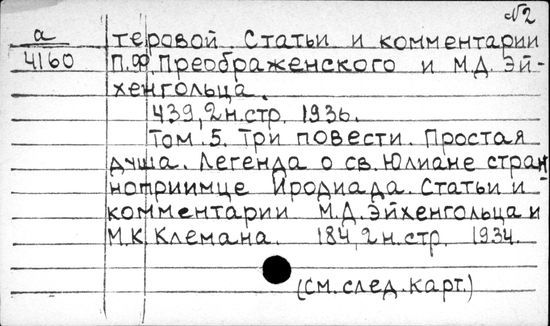 №2
а теровой Статьи и комментарии
4160 П.Ф.Преображенского и М.Д. Эй-
хенгольца.
439,2н.стр. 1936.
Том.5. Три повести. Простая
душа. Легенда о св.Юлиане стран
ноприимце Иродиада. Статьи и
комментарии М.Д.Эйхенгольца и
М.К.Клемана. 184,2н.стр. 1934.
(см.след.карт.)